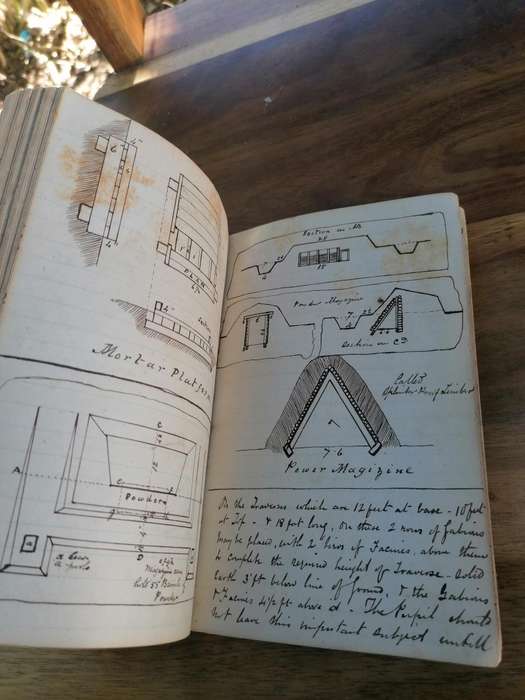 4"
4"
Rail
PLAN
4"
Section
Mortar Platform
C
A
Powders
D
Powder
Section on AB
25
15
Powder Magizine
7
6
Section on CD
Called
Splinter Proof Timber
7
7 6
Power Magizine
On the Traverses which are 12 feet at base - 10 feet
at Top - & 18 feet long, on these 2 rows of Gabions
may be placed, with 2 rows of Facines, above them
to complete the required height of Traverse - solid
earth 3 ft below line of Ground, & the Gabions
& Facines 4 1/2 ft above it - The Pupil should
not leave this important subject untill